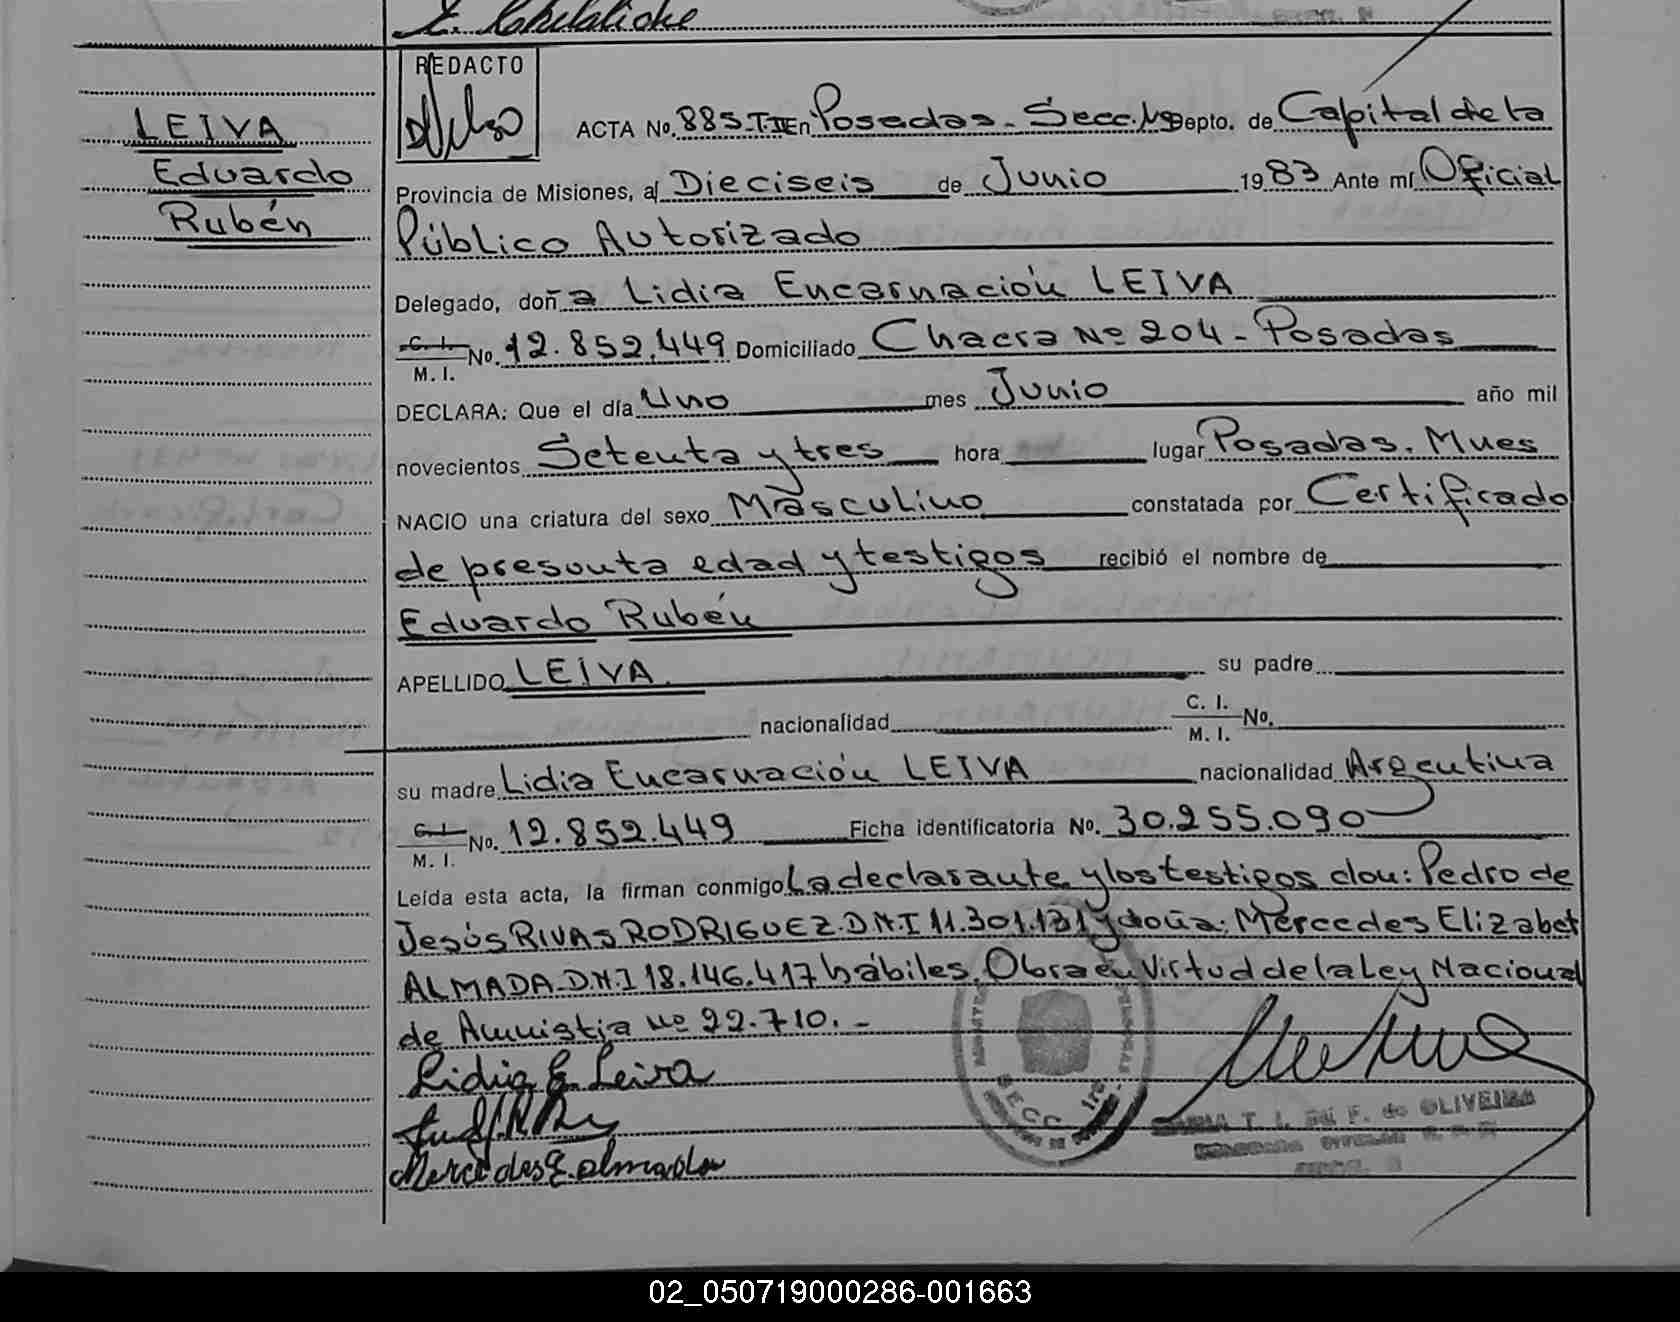 LEIVA
Eduardo
Rubén
REDACTO
ACTA No. 885-T.II En Posadas - Secc. 1ª Depto. de Capital de la
Provincia de Misiones, al Dieciseis de Junio 1983 Ante mí Oficial
Público Autorizado
Delegado, doña Lidia Encarnación LEIVA
C. I. M. I. No. 12.852.449 Domiciliado Chacra Nº 204 - Posadas
DECLARA: Que el día Uno mes Junio año mil
novecientos Setenta y tres hora lugar Posadas. Mnes
NACIO una criatura del sexo Masculino constatada por Certificado
de presunta edad y testigos recibió el nombre de
Eduardo Rubén
APELLIDO LEIVA su padre
nacionalidad C. I. M. I. No.
su madre Lidia Encarnación LEIVA nacionalidad Argentina
C. I. M. I. No. 12.852.449 Ficha identificatoria No. 30.255.090
Leída esta acta, la firman conmigo La declarante y los testigos don: Pedro de
Jesús RIVAS RODRIGUEZ. D.N.I 11.301.131 y doña: Mercedes Elizabet
ALMADA. D.N.I 18.146.417 hábiles. Obra en Virtud de la Ley Nacional
de Amnistia Nº 22.710.-
Lidia E. Leiva
Mercedes E. Almada
SECC. 1ra
T. I. F. de OLIVEIRA
02_050719000286-001663